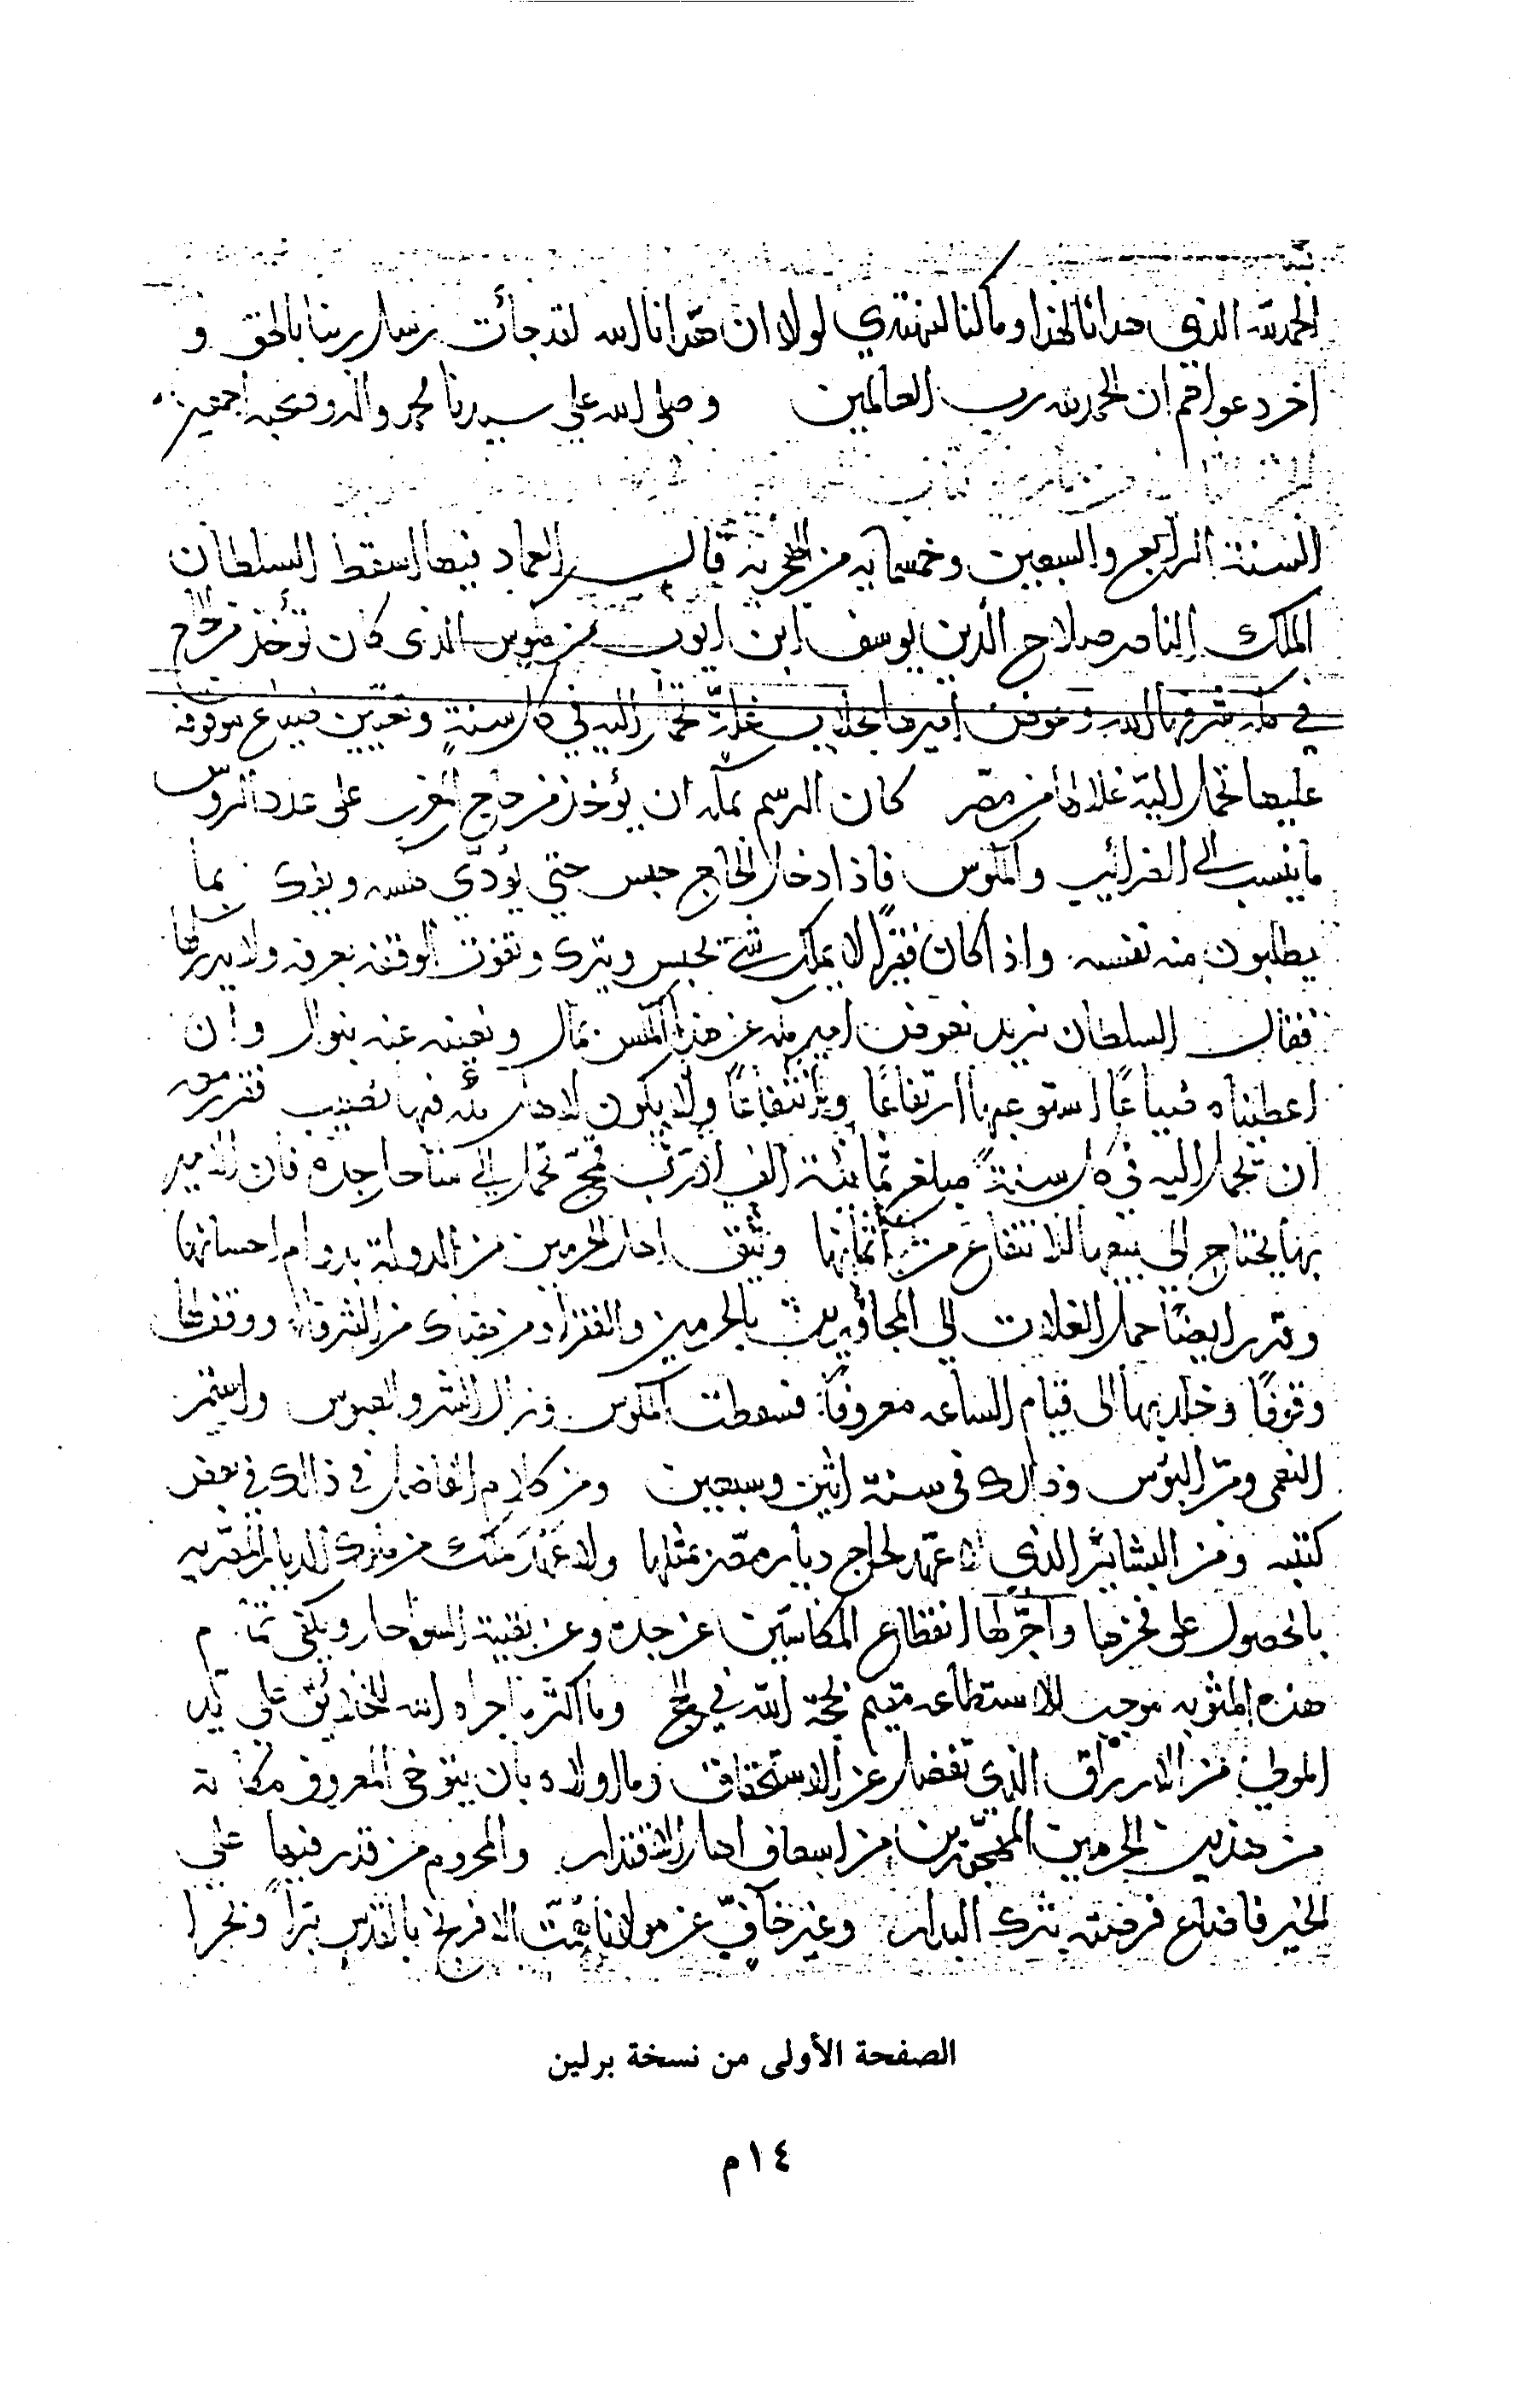 الحمد لله الذي هدانا لهذا وما كنا لنهتدي لولا ان هدانا الله لقد جأت رسل ربنا بالحق و
اخر دعواهم ان الحمد لله رب العالمين وصلى الله علي سيدنا محمد واله وصحبه اجمعين
السنة الرابع والسبعين وخمسمايه من الهجرية قال العماد فيها اسقط السلطان
الملك الناصر صلاح الدين يوسف ابن ايوب مكوس الذى كان تؤخذ من حاج
في مكه شرفها الله وعوض اميرها بجلاب غلة تحمل اليه في كل سنةٍ وتعيين ضياع موقوفة
عليها تحمل اليه غلالها من مصر كان الرسم بمكه ان يؤخذ من حاج المغرب على عدد الروس
ما ينسب الى الضرائب والمكوس فاذا دخل الحاج حبس حتي يؤدّي مكسه ويفك بما
يطلبون منه نفسه واذا كان فقيرًا لا يملك شي يحبس ويترك وتفوت الوقفه بعرفه ولا يدركها
فقال السلطان نريد نعوض امير مكه عن هذا المكس بمال ونغنيه عنه بنوال وان
اعطيناه ضياعًا استوعبها ارتفاعًا وانتفاعًا ولا يكون لاهل مكه فيها نصيب فقرر معه
ان تحمل اليه في كل سنة مبلغ ثمانية الف اردب قمح تحمل الى ساحل جده فان الامير
بها يحتاج الي بيعها للانتفاع من أثمانها وتثق اهل الحرمين من الدولة بدوام احسانها
وقرر ايضًا حمل الغلات الي المجاورين بالحرمين والفقراء ومن هناك من الشرفاء ووقف لها
وقوفًا وخلد بها الى قيام الساعه معروفًا فسقطت المكوس وزال البشر والعبوس واستمر
النعمى ومرّ البؤس وذالك في سنة اثنين وسبعين ومن كلام الفاضل في ذالك في بعض
كتبه ومن البشائر الذي لا عهد لحاج ديار مصر بمثلها ولا عهد ملك من ملوك الديار المصريه
بالحصول على فخرها واجرها انقطاع المكاسين عن جده وعن بقية السواحل ويكفى تمام
هذه المثوبه موجب للاستطاعه مقيم لحجة الله في الحج وما اكثر ما اجراه الله للخلائق على يد
المولي من الارزاق الذي تفضل عن الاستحقاق وما اولاه بان يتوخى المعروف مكانة
من هذين الحرمين المهجورين من اسعاف اهل الاقتدار والمحروم من قدر فيها على
الخير فاضاع فرضته بترك البدار وغير خافٍ عن مولانا الافرنج بالقدس برًا وبحرا
الصفحة الأولى من نسخة برلين
١٤م